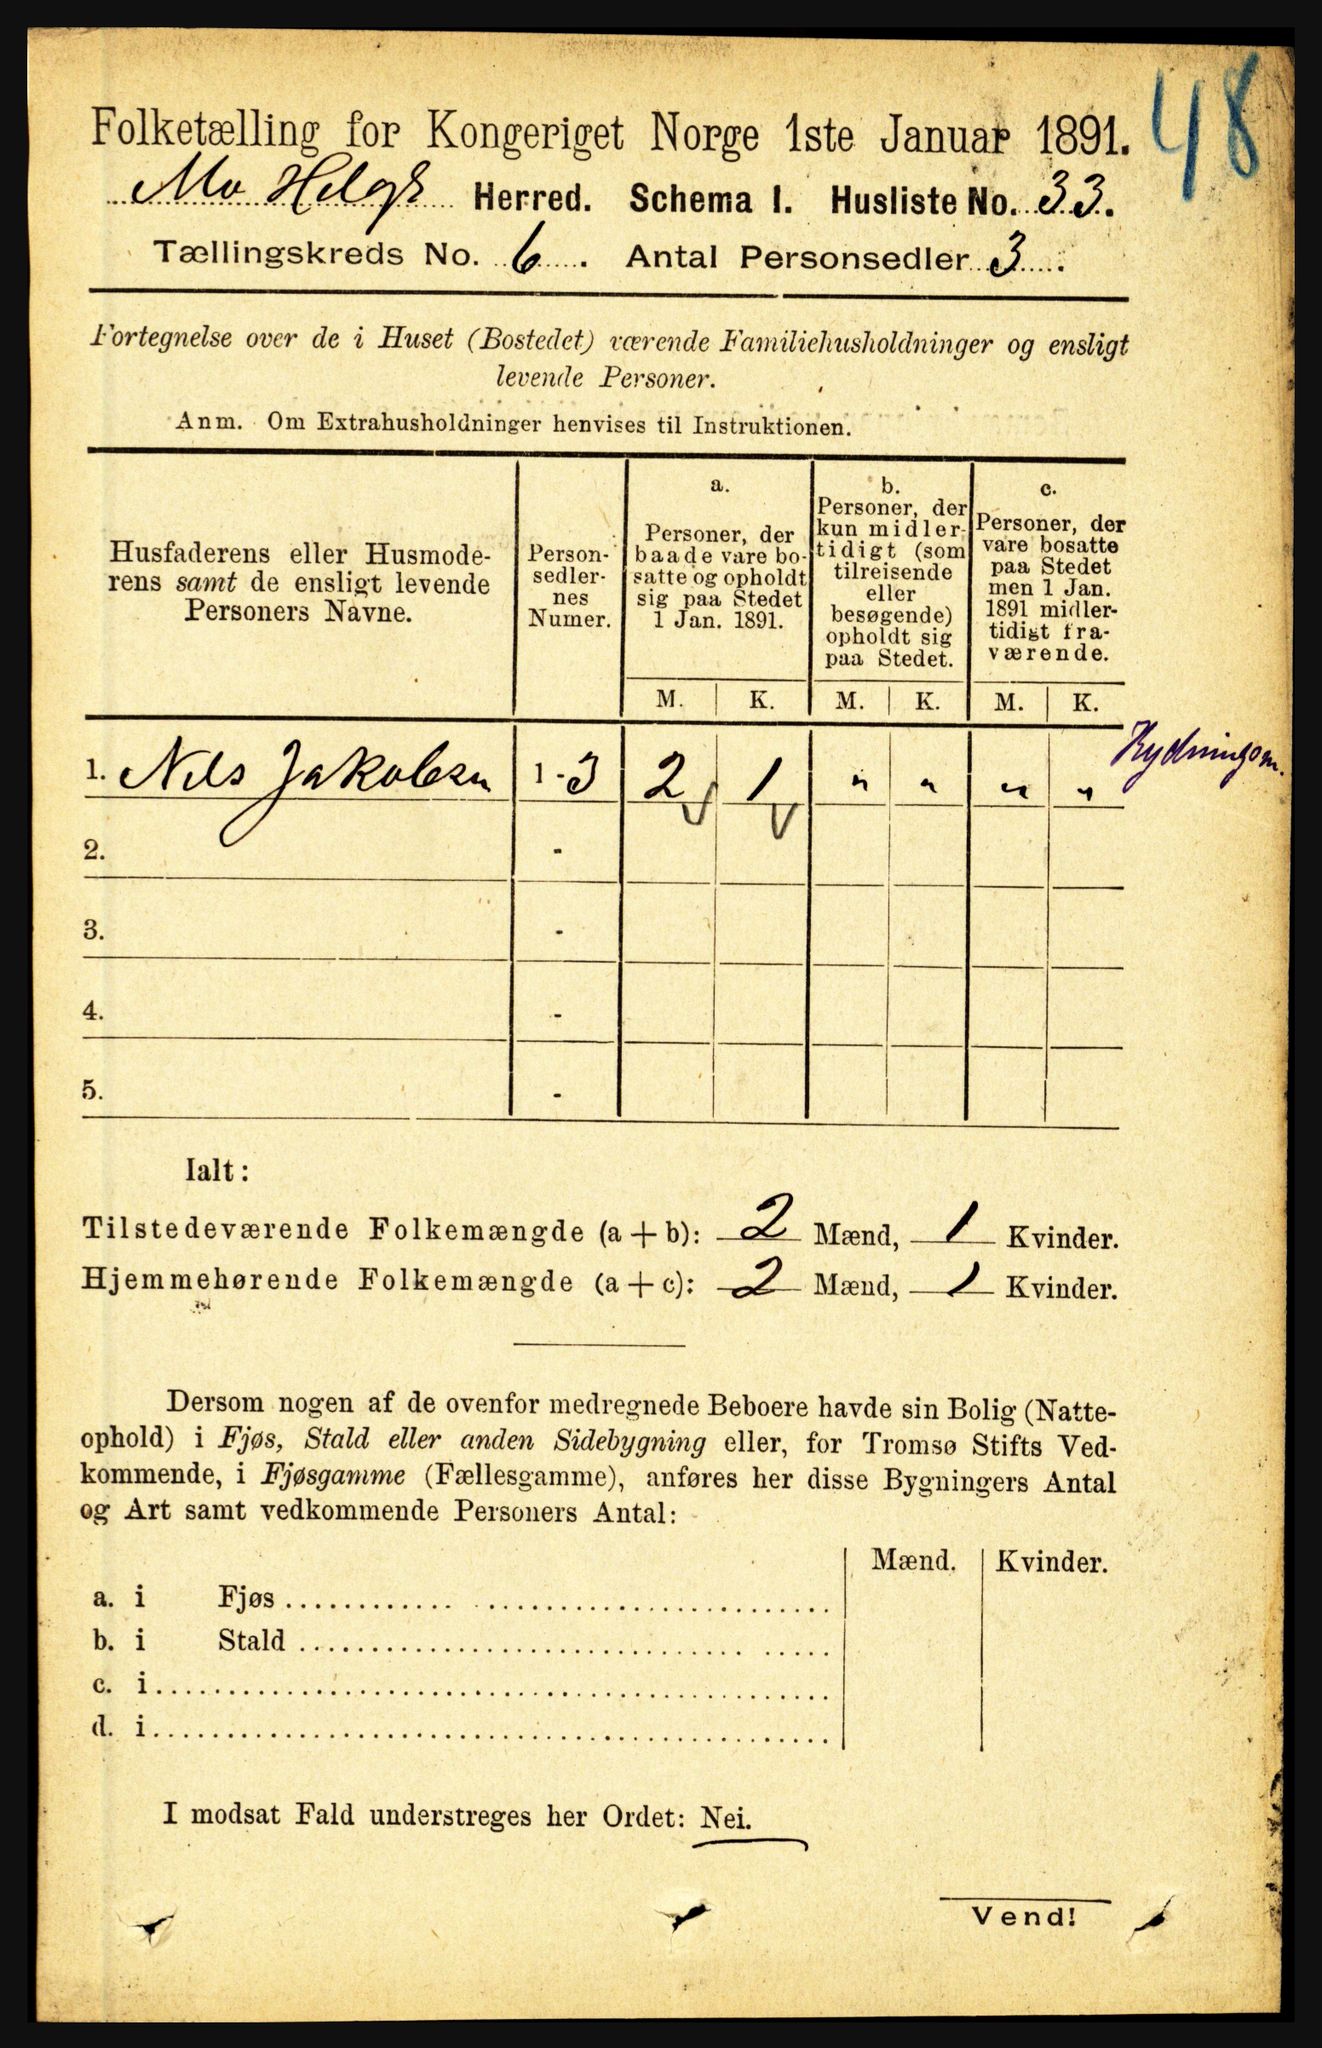 48
Folketælling for Kongeriget Norge 1ste Januar 1891.
Mo Helgl. Herred. Schema I. Husliste No. 33.
Tællingskreds No. 6. Antal Personsedler 3.
Fortegnelse over de i Huset (Bostedet) værende Familiehusholdninger og ensligt
levende Personer.
Anm. Om Extrahusholdninger henvises til Instruktionen.
Husfaderens eller Husmode-
rens samt de ensligt levende
Personers Navne.
Person-
sedler-
nes
Numer.
a.
Personer, der
baade vare bo-
satte og opholdt
sig paa Stedet
1 Jan. 1891.
b.
Personer, der
kun midler-
tidigt (som
tilreisende
eller
besøgende)
opholdt sig
paa Stedet.
c.
Personer, der
vare bosatte
paa Stedet
men 1 Jan.
1891 midler-
tidigt fra-
værende.
M. K. M. K. M. K.
1. Nils Jakobsen 1-3 2 1 " " " " Rydningsm.
2. -
3. -
4. -
5. -
Ialt:
Tilstedeværende Folkemængde (a + b): 2 Mænd, 1 Kvinder.
Hjemmehørende Folkemængde (a + c): 2 Mænd, 1 Kvinder.
Dersom nogen af de ovenfor medregnede Beboere havde sin Bolig (Natte-
ophold) i Fjøs, Stald eller anden Sidebygning eller, for Tromsø Stifts Ved-
kommende, i Fjøsgamme (Fællesgamme), anføres her disse Bygningers Antal
og Art samt vedkommende Personers Antal:
Mænd. Kvinder.
a. i Fjøs
b. i Stald
c. i
d. i
I modsat Fald understreges her Ordet: Nei.
Vend!